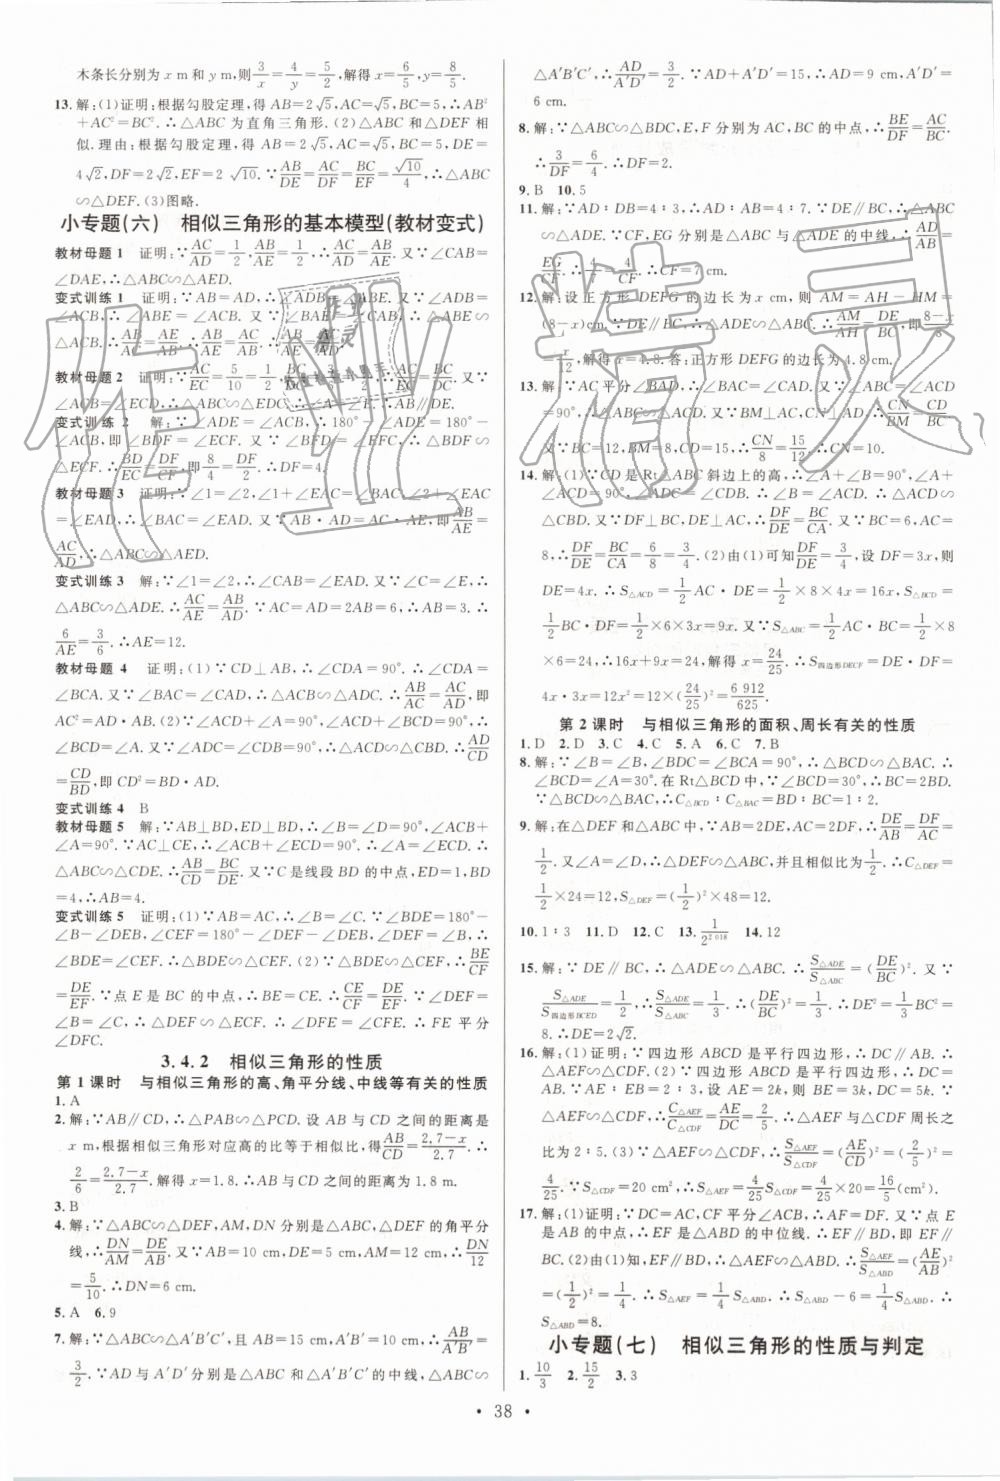 木条长分别为 x m 和 y m,则3/x=4/y=5/2,解得 x=6/5,y=8/5.
13.解:(1)证明:根据勾股定理,得 AB=2√5,AC=√5,BC=5,∴AB²
+AC²=BC².∴△ABC 为直角三角形.(2)△ABC 和△DEF 相
似.理由:根据勾股定理,得 AB=2√5,AC=√5,BC=5,DE=
4√2,DF=2√2,EF=2√10.∵AB/DE=AC/DF=BC/EF=√10/4,∴△ABC
∽△DEF.(3)图略.
小专题(六) 相似三角形的基本模型(教材变式)
教材母题 1 证明:∵AC/AD=1/2,AB/AE=1/2,∴AC/AD=AB/AE.又∵∠CAB=
∠DAE,∴△ABC∽△AED.
变式训练 1 证明:∵AB=AD,∴∠ADB=∠ABE.又∵∠ADB=
∠ACB,∴∠ABE=∠ACB.又∵∠BAE=∠CAB,∴△ABE∽△
ACB.∴AB/AC=AE/AB.又∵AB=AD,
教材母题 2 证明:∵AC/EC=5/10=1/2,BC/DC=1/2,∴AC/EC=BC/DC.又∵
∠ACB=∠ECD,∴△ABC∽△EDC.∴∠A=∠E.∴AB∥DE.
变式训练 2 解:∵∠ADE=∠ACB,∴180°-∠ADE=180°-
∠ACB,即∠BDF=∠ECF.又∵∠BFD=∠EFC,∴△BDF∽
△ECF.∴BD/EC=DF/CF,即8/4=DF/2.∴DF=4.
教材母题 3 证明:∵∠1=∠2,∴∠1+∠EAC=∠2+∠EAC
=∠EAD,∴∠BAC=∠EAD.又∵AB·AD=AC·AE,即AB/AE=
AC/AD,∴△ABC∽△AED.
变式训练 3 解:∵∠1=∠2,∴∠CAB=∠EAD.又∵∠C=∠E,∴
△ABC∽△ADE.∴AC/AE=AB/AD.又∵AC=AD=2AB=6,∴AB=3.∴
6/AE=3/6.∴AE=12.
教材母题 4 证明:(1)∵CD⊥AB,∴∠CDA=90°.∴∠CDA=
∠BCA.又∵∠BAC=∠CAD,∴△ABC∽△ADC.∴AB/AC=AC/AD,即
AC²=AD·AB.(2)∵∠ACD+∠A=90°,∠ACD+∠BCD=90°,
∴∠BCD=∠A.又∵∠ADC=∠CDB=90°,∴△ACD∽△CBD.∴AD/CD
=CD/BD=即 CD²=BD·AD.
变式训练 4 B
教材母题 5 解:∵AB⊥BD,ED⊥BD,∴∠B=∠D=90°,∠ACB+
∠A=90°.∵AC⊥CE,∴∠ACB+∠ECD=90°.∴∠A=∠ECD.∴
△ABC∽△CDE.∴AB/CD=BC/DE.又∵C是线段BD的中点,ED=1,BD
=4,∴AB=4.
变式训练 5 证明:(1)∵AB=AC,∴∠B=∠C.∵∠BDE=180°-
∠B-∠DEB,∠CEF=180°-∠DEF-∠DEB,∠DEF=∠B,∴
∠BDE=∠CEF.∴△BDE∽△CEF.(2)∵△BDE∽△CEF,∴BE/CF
=DE/EF.∵点 E 是 BC 的中点,∴BE=CE.∴CE/CF=DE/EF.∵∠DEF=
∠B=∠C,∴△DEF∽△ECF.∴∠DFE=∠CFE.∴FE 平分
∠DFC.
3.4.2 相似三角形的性质
第 1 课时 与相似三角形的高、角平分线、中线等有关的性质
1.A
2.解:∵AB∥CD,∴△PAB∽△PCD.设 AB 与 CD 之间的距离是
x m,根据相似三角形对应高的比等于相似比,得AB/CD=2.7-x/2.7.∴
2/6=2.7-x/2.7.解得 x=1.8.答:AB与 CD 之间的距离为 1.8 m.
3.B
4.解:∵△ABC∽△DEF,AM,DN 分别是△ABC,△DEF 的角平分
线,∴DN/AM=DE/AB.又∵AB=10 cm,DE=5 cm,AM=12 cm,∴DN/12
=5/10.∴DN=6 cm.
5.A 6.9
7.解:∵△ABC∽△A′B′C′,且 AB=15 cm,A′B′=10 cm,∴AB/A′B′=
3/2.∵AD 与 A′D′分别是△ABC 和△A′B′C′的中线,△ABC∽
△A′B′C′,∴AD/A′D′=AB/A′B′=3/2.∵AD+A′D′=15,∴AD=9 cm,A′D′=
6 cm.
8.解:∵△ABC∽△BDC,E,F 分别为 AC,BC 的中点,∴BE/DF=AC/BC.
∴3/DF=6/4.∴DF=2.
9.B 10.5
11.解:∵AD∶DB=4∶3,∴AD∶AB=4∶7.∵DE∥BC,∴△ABC∽
△ADE.∵CF,EG 分别是△ABC 与△ADE 的中线,∴AD/AB=
EG/CF.∴4/7=4/CF.∴CF=7 cm.
12.解:设正方形 DEFG 的边长为 x cm,则 AM=AH-HM=
(8-x) cm.∵DE∥BC,∴△ADE∽△ABC.∴AM/AH=DE/BC,即8-x/8=
x/12,解得 x=4.8.答:正方形 DEFG 的边长为 4.8 cm.
13.解:∵AC平分∠BAD,∴∠BAC=∠DAC.又∵∠ABC=∠ACD
=90°,∴△BAC∽△CAD.又∵BM⊥AC,CN⊥AD,∴CN/BM=CD/BC.
又∵BC=12,BM=8,CD=15,∴CN/8=15/12.∴CN=10.
14.解:(1)∵CD 是Rt△ABC 斜边上的高,∴∠A+∠B=90°,∠A+
∠ACD=90°,∠ADC=∠CDB.∴∠ACD=∠B.∴△ACD∽
△CBD.又∵DF⊥BC,DE⊥AC,∴DF/DE=BC/CA.又∵BC=6,AC=
8,∴DF/DE=BC/CA=6/8=3/4.(2)由(1)可知DF/DE=3/4,设 DF=3x,则
DE=4x.∴S△ACD=1/2AC·DE=1/2×8×4x=16x,S△BCD=
1/2BC·DF=1/2×6×3x=9x.又∵S△ABC=1/2AC·BC=1/2×8
×6=24,∴16x+9x=24,解得 x=24/25.∴S四边形DECF=DE·DF=
4x·3x=12x²=12×(24/25)²=6 912/625.
第 2 课时 与相似三角形的面积、周长有关的性质
1.D 2.D 3.C 4.C 5.A 6.C 7.B
8.解:∵∠B=∠B,∠BDC=∠BCA=90°,∴△BCD∽△BAC.∴
∠BCD=∠A=30°.在 Rt△BCD 中,∵∠BCD=30°,∴BC=2BD.
∵△BCD∽△BAC,∴C△BCD∶C△BAC=BD∶BC=1∶2.
9.解:在△DEF 和△ABC 中,∵AB=2DE,AC=2DF,∴DE/AB=DF/AC=
1/2.又∠A=∠D,∴△DEF∽△ABC,并且相似比为1/2.∴C△DEF=
1/2×24=12,S△DEF=(1/2)²×48=12.
10.1∶3 11.D 12.C 13.1/2^2 018 14.12
15.解:∵DE∥BC,∴△ADE∽△ABC.∴S△ADE/S△ABC=(DE/BC)².又∵
S△ADE/S四边形BCED=1/2,∴S△ADE/S△ABC=1/3.∴(DE/BC)²=1/3.∴DE²=1/3BC²=
8.∴DE=2√2.
16.解:(1)证明:∵四边形 ABCD 是平行四边形,∴∠EAF=
∠DCF,∠AEF=∠CDF.∴△AEF∽△CDF.(2)∵四边形
ABCD 是平行四边形,∴AB=DC.又∵AE∶EB=2∶3,设 AE=2k,则 BE=3k,DC=5k.∵
△AEF∽△CDF,∴C△AEF/C△CDF=AE/DC=2/5.∴△AEF与△CDF 周长之
比为 2∶5.(3)∵△AEF∽△CDF,∴S△AEF/S△CDF=(AE/CD)²=(2/5)²=
4/25.∵S△CDF=20 cm²,∴S△AEF=4/25S△CDF=4/25×20=16/5(cm²).
17.解:(1)证明:∵DC=AC,CF 平分∠ACB,∴AF=DF.又∵点 E
是AB 的中点,∴EF 是△ABD 的中位线.∴EF∥BD,即 EF∥
BC.(2)由(1)知,EF∥BD,∴△AEF∽△ABD.∴S△AEF/S△ABD=(AE/AB)²
=(1/2)²=1/4.∴S△AEF=1/4S△ABD.∴S△ABD-6=1/4S△ABD.∴
S△ABD=8.
小专题(七) 相似三角形的性质与判定
1.10/3 2.15/2 3.3
· 38 ·